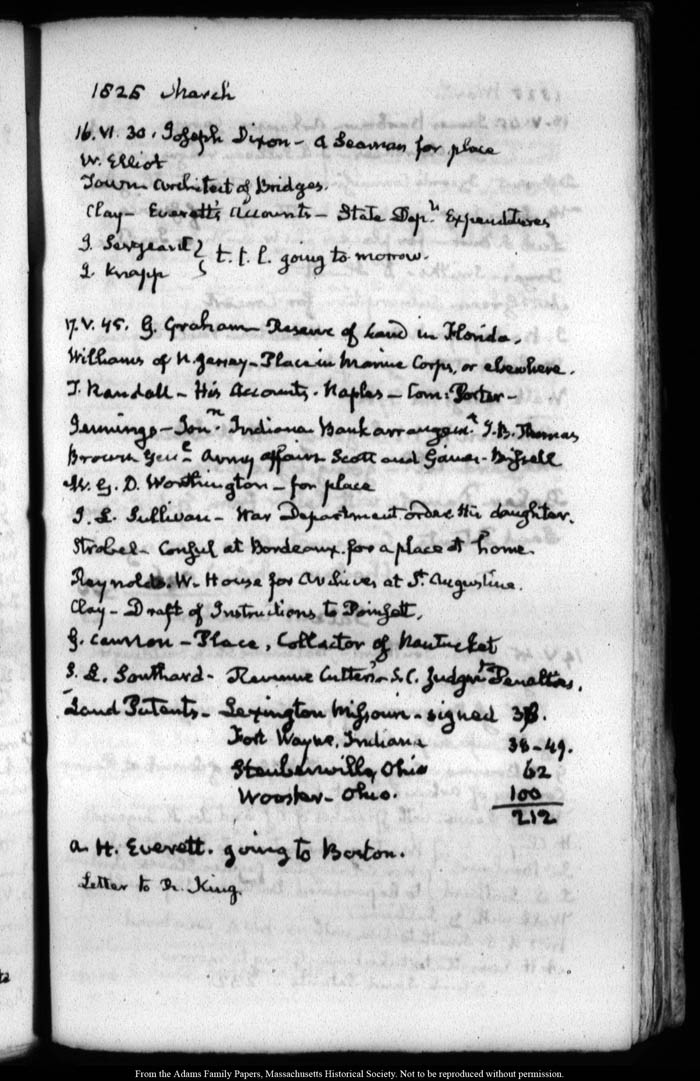 1825 March
16. VI. 30. Joseph Dixon - a Seaman for place
W. Elliot
Town Architect of Bridges.
Clay - Everett's Accounts - State Depn Expenditures
J. Sergeant } t. t. l. going to morrow.
J. Knapp
17. V. 45. G. Graham Reserve of Land in Florida.
Williams of N. Jersey - Place in Marine Corps, or elsewhere.
T. Randall - His Accounts. Naples - Com: Porter -
Jennings - Jonn. Indiana Bank arrangemt J. B. Thomas
Brown Genl - Army affairs Scott and Gaines - Bissell
W. G. D. Worthington - for place
J. L. Sullivan - War Department order. His daughter.
Strobel - Consul at Bordeaux. for a place at home.
Reynolds. W - House for Archives at St. Augustine.
Clay - Draft of Instructions to Poinsett.
G. Cannon - Place, Collector of Nantucket
S. L. Southard - Revenue Cutters - S. C. Judgmts Penalties.
Land Patents - Lexington Missouri - signed 3
Fort Wayne. Indiana 38-49.
Steubenville, Ohio 62
Wooster - Ohio. 100
212
A. H. Everett. going to Boston.
Letter to Dr. King.
From the Adams Family Papers, Massachusetts Historical Society. Not to be reproduced without permission.